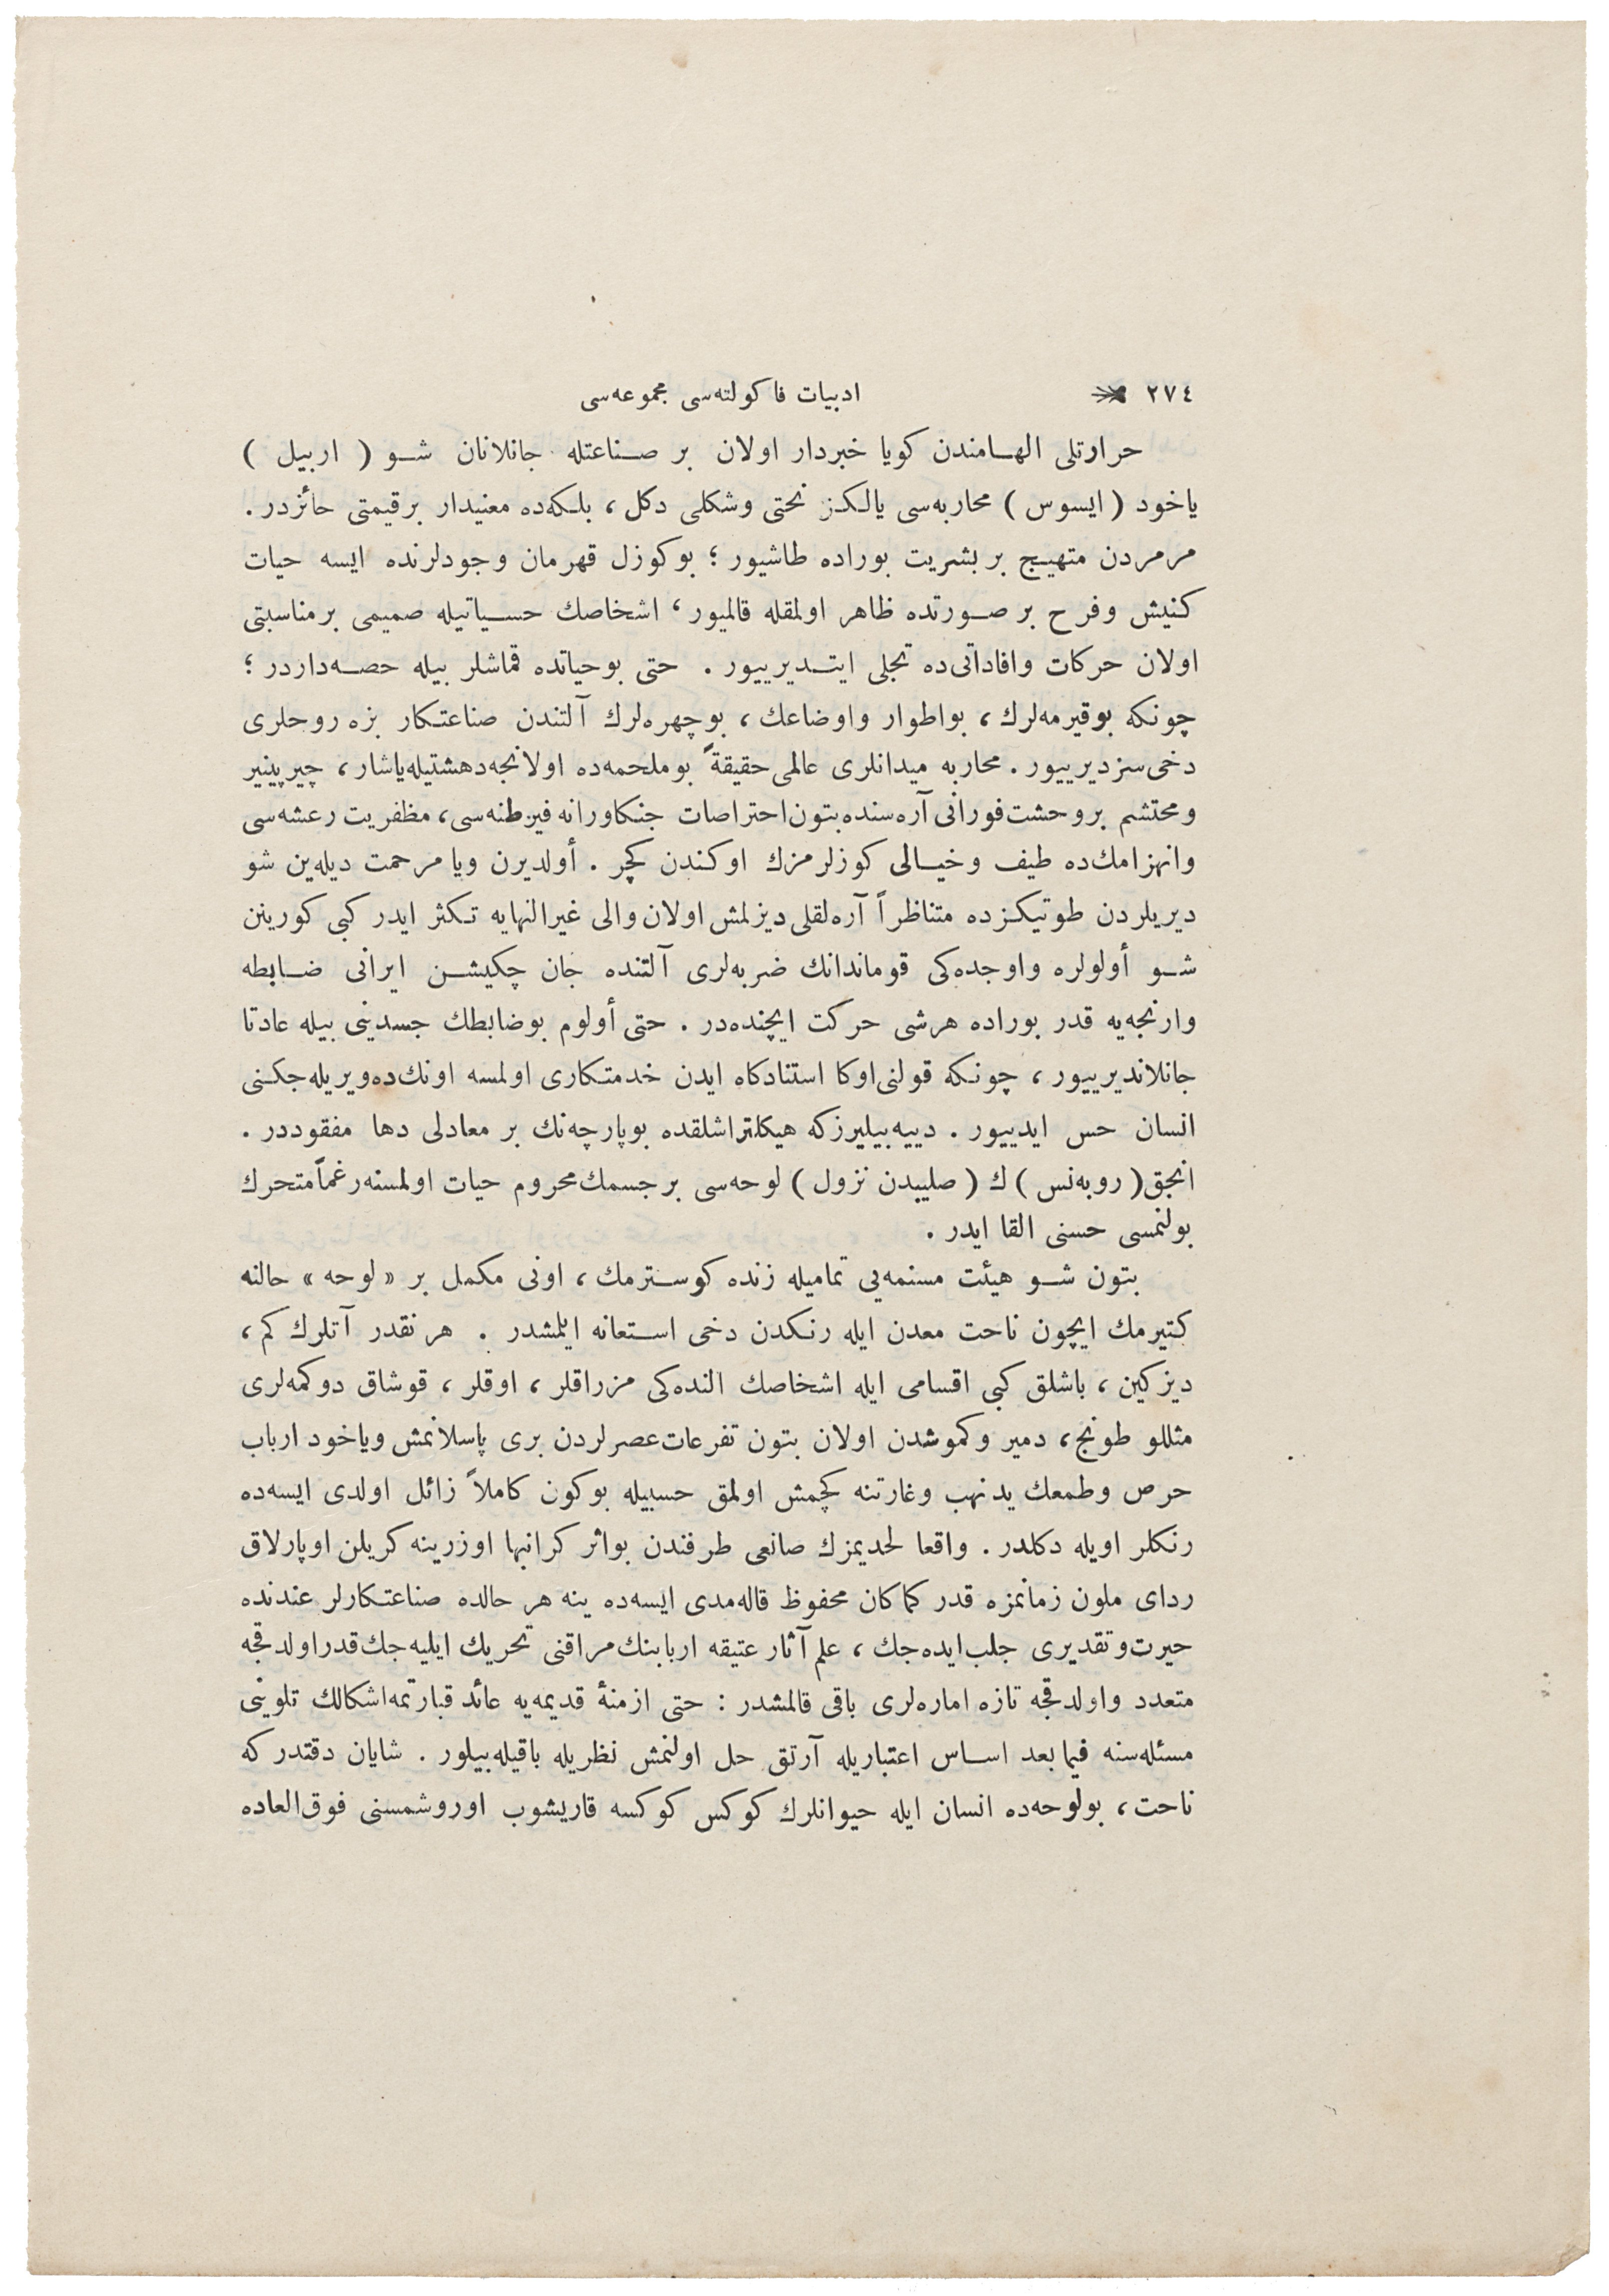 ٢٧٤ ادبيات فاكولته‌سی مجموعه‌سی
حرارتلی الهامندن كويا خبردار اولان بر صناعتله جانلانان شو ( اربيل )
ياخود ( ايسوس ) محاربه‌سی يالكز نحتی وشكلی دكل ، بلكه‌ده معنيدار برقيمتی حائزدر .
مرمردن متهيج بر بشريت بوراده طاشيور ؛ بوكوزل قهرمان وجودلرنده ايسه حيات
كنيش وفرح بر صورتده ظاهر اولمقله قالميور ، اشخاصك حسياتيله صميمی برمناسبتی
اولان حركات وافاداتی‌ده تجلی ايتديرييور . حتی بوحياتده قماشلر بيله حصه‌داردر ؛
چونكه بوقيرمه‌لرك ، بواطوار واوضاعك ، بوچهره‌لرك آلتندن صناعتكار بزه روحلری
دخی سزديرييور . محاربه ميدانلری عالمی حقيقةً بوملحمه‌ده اولانجه دهشتيله ياشار ، چيرپينير
ومحتشم بروحشت فورانی آره‌سنده بتون احتراصات جنكاورانه فيرطنه‌سی ، مظفريت رعشه‌سی
وانهزامك‌ده طيف وخيالی كوزلرمزك اوكندن كچر . أولديرن ويا مرحمت ديله‌ين شو
ديريلردن طوتيكزده متناظراً آره‌لقلی ديزلمش اولان والی غيرالنهايه تكثر ايدر كبی كورينن
شو أولولره واوجده‌كی قوماندانك ضربه‌لری آلتنده جان چكيشن ايرانی ضابطه
وارنجه‌يه قدر بوراده هرشی حركت ايچنده‌در . حتی أولوم بوضابطك جسدينی بيله عادتا
جانلانديرييور ، چونكه قولنی اوكا استنادكاه ايدن خدمتكاری اولمسه اونك‌ده ويريله‌جكنی
انسان حس ايدييور . دييه‌بيليرزكه هيكلتراشلقده بوپارچه‌نك بر معادلی دها مفقوددر .
انجق ( روبه‌نس ) ك ( صليبدن نزول ) لوحه‌سی برجسمك محروم حيات اولمسنه رغماً متحرك
بولنمسی حسنی القا ايدر .
بتون شو هيئت مسنمه‌یی تماميله زنده كوسترمك ، اونی مكمل بر «لوحه» حالنه
كتيرمك ايچون ناحت معدن ايله رنكدن دخی استعانه ايلمشدر . هرنقدر آتلرك كم ،
ديزكين ، باشلق كبی اقسامی ايله اشخاصك النده‌كی مزراقلر ، اوقلر ، قوشاق دوكمه‌لری
مثللو طونج ، دمير وكموشدن اولان بتون تفرعات عصرلردن بری پاسلانمش وياخود ارباب
حرص وطمعك يدنهب وغارتنه كچمش اولمق حسبيله بوكون كاملاً زائل اولدی ايسه‌ده
رنكلر اويله دكلدر . واقعا لحديمزك صانعی طرفندن بواثر كرانبها اوزرينه كريلن اوپارلاق
ردای ملون زمانمزه قدر كماكان محفوظ قاله‌مدی ايسه‌ده ينه هر حالده صناعتكارلر عندنده
حيرت وتقديری جلب ايده‌جك ، علم آثار عتيقه اربابنك مراقنی تحريك ايليه‌جك قدر اولدقجه
متعدد واولدقجه تازه اماره‌لری باقی قالمشدر : حتی ازمنهٔ قديمه‌يه عائد قبارتمه اشكالك تلوينی
مسئله‌سنه فيمابعد اساس اعتباريله آرتق حل اولنمش نظريله باقيله‌بيلور . شايان دقتدركه
ناحت ، بولوحه‌ده انسان ايله حيوانلرك كوكس كوكسه قاريشوب اوروشمسنی فوق‌العاده